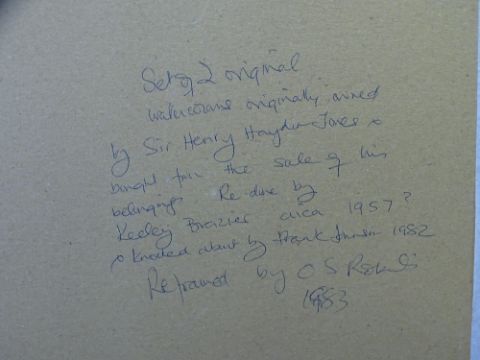 Set of 2 original
watercolours originally owned
by Sir Henry Haydn-Jones &
bought from the sale of his
belongings Re done by
Keeley Brazier circa 1957?
& knocked about by Frank 1982
Reframed by O S
1983